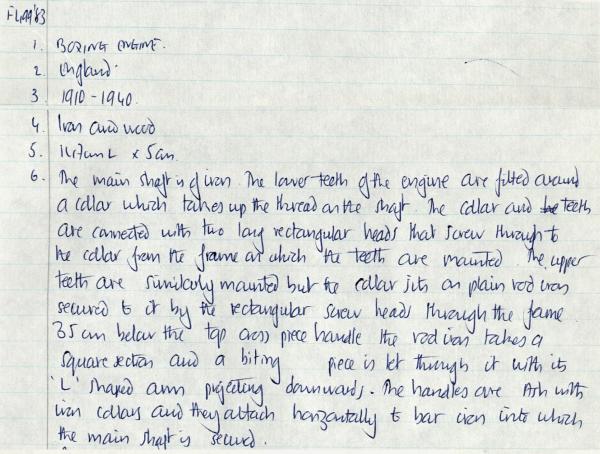 1. BORING ENGINE.
2. England.
3. 1910-1940.
4. Iron and wood
5. L x 5cm.
6. The main shaft is of iron. The lower teeth of the engine are fitted around
a collar which takes up the thread on the shaft. The collar and the teeth
are connected with two large rectangular heads that screw through to
the collar from the frame on which the teeth are mounted. The upper
teeth are similarly mounted but the collar sits on plain rod iron
secured to it by the rectangular screw heads through the frame.
35 cm below the top cross piece handle the rod iron takes a
square section and a biting piece is let through it with its
'L' shaped arm projecting downwards. The handles are Ash with
iron collars and they attach horizontally to bar iron into which
the main shaft is secured.